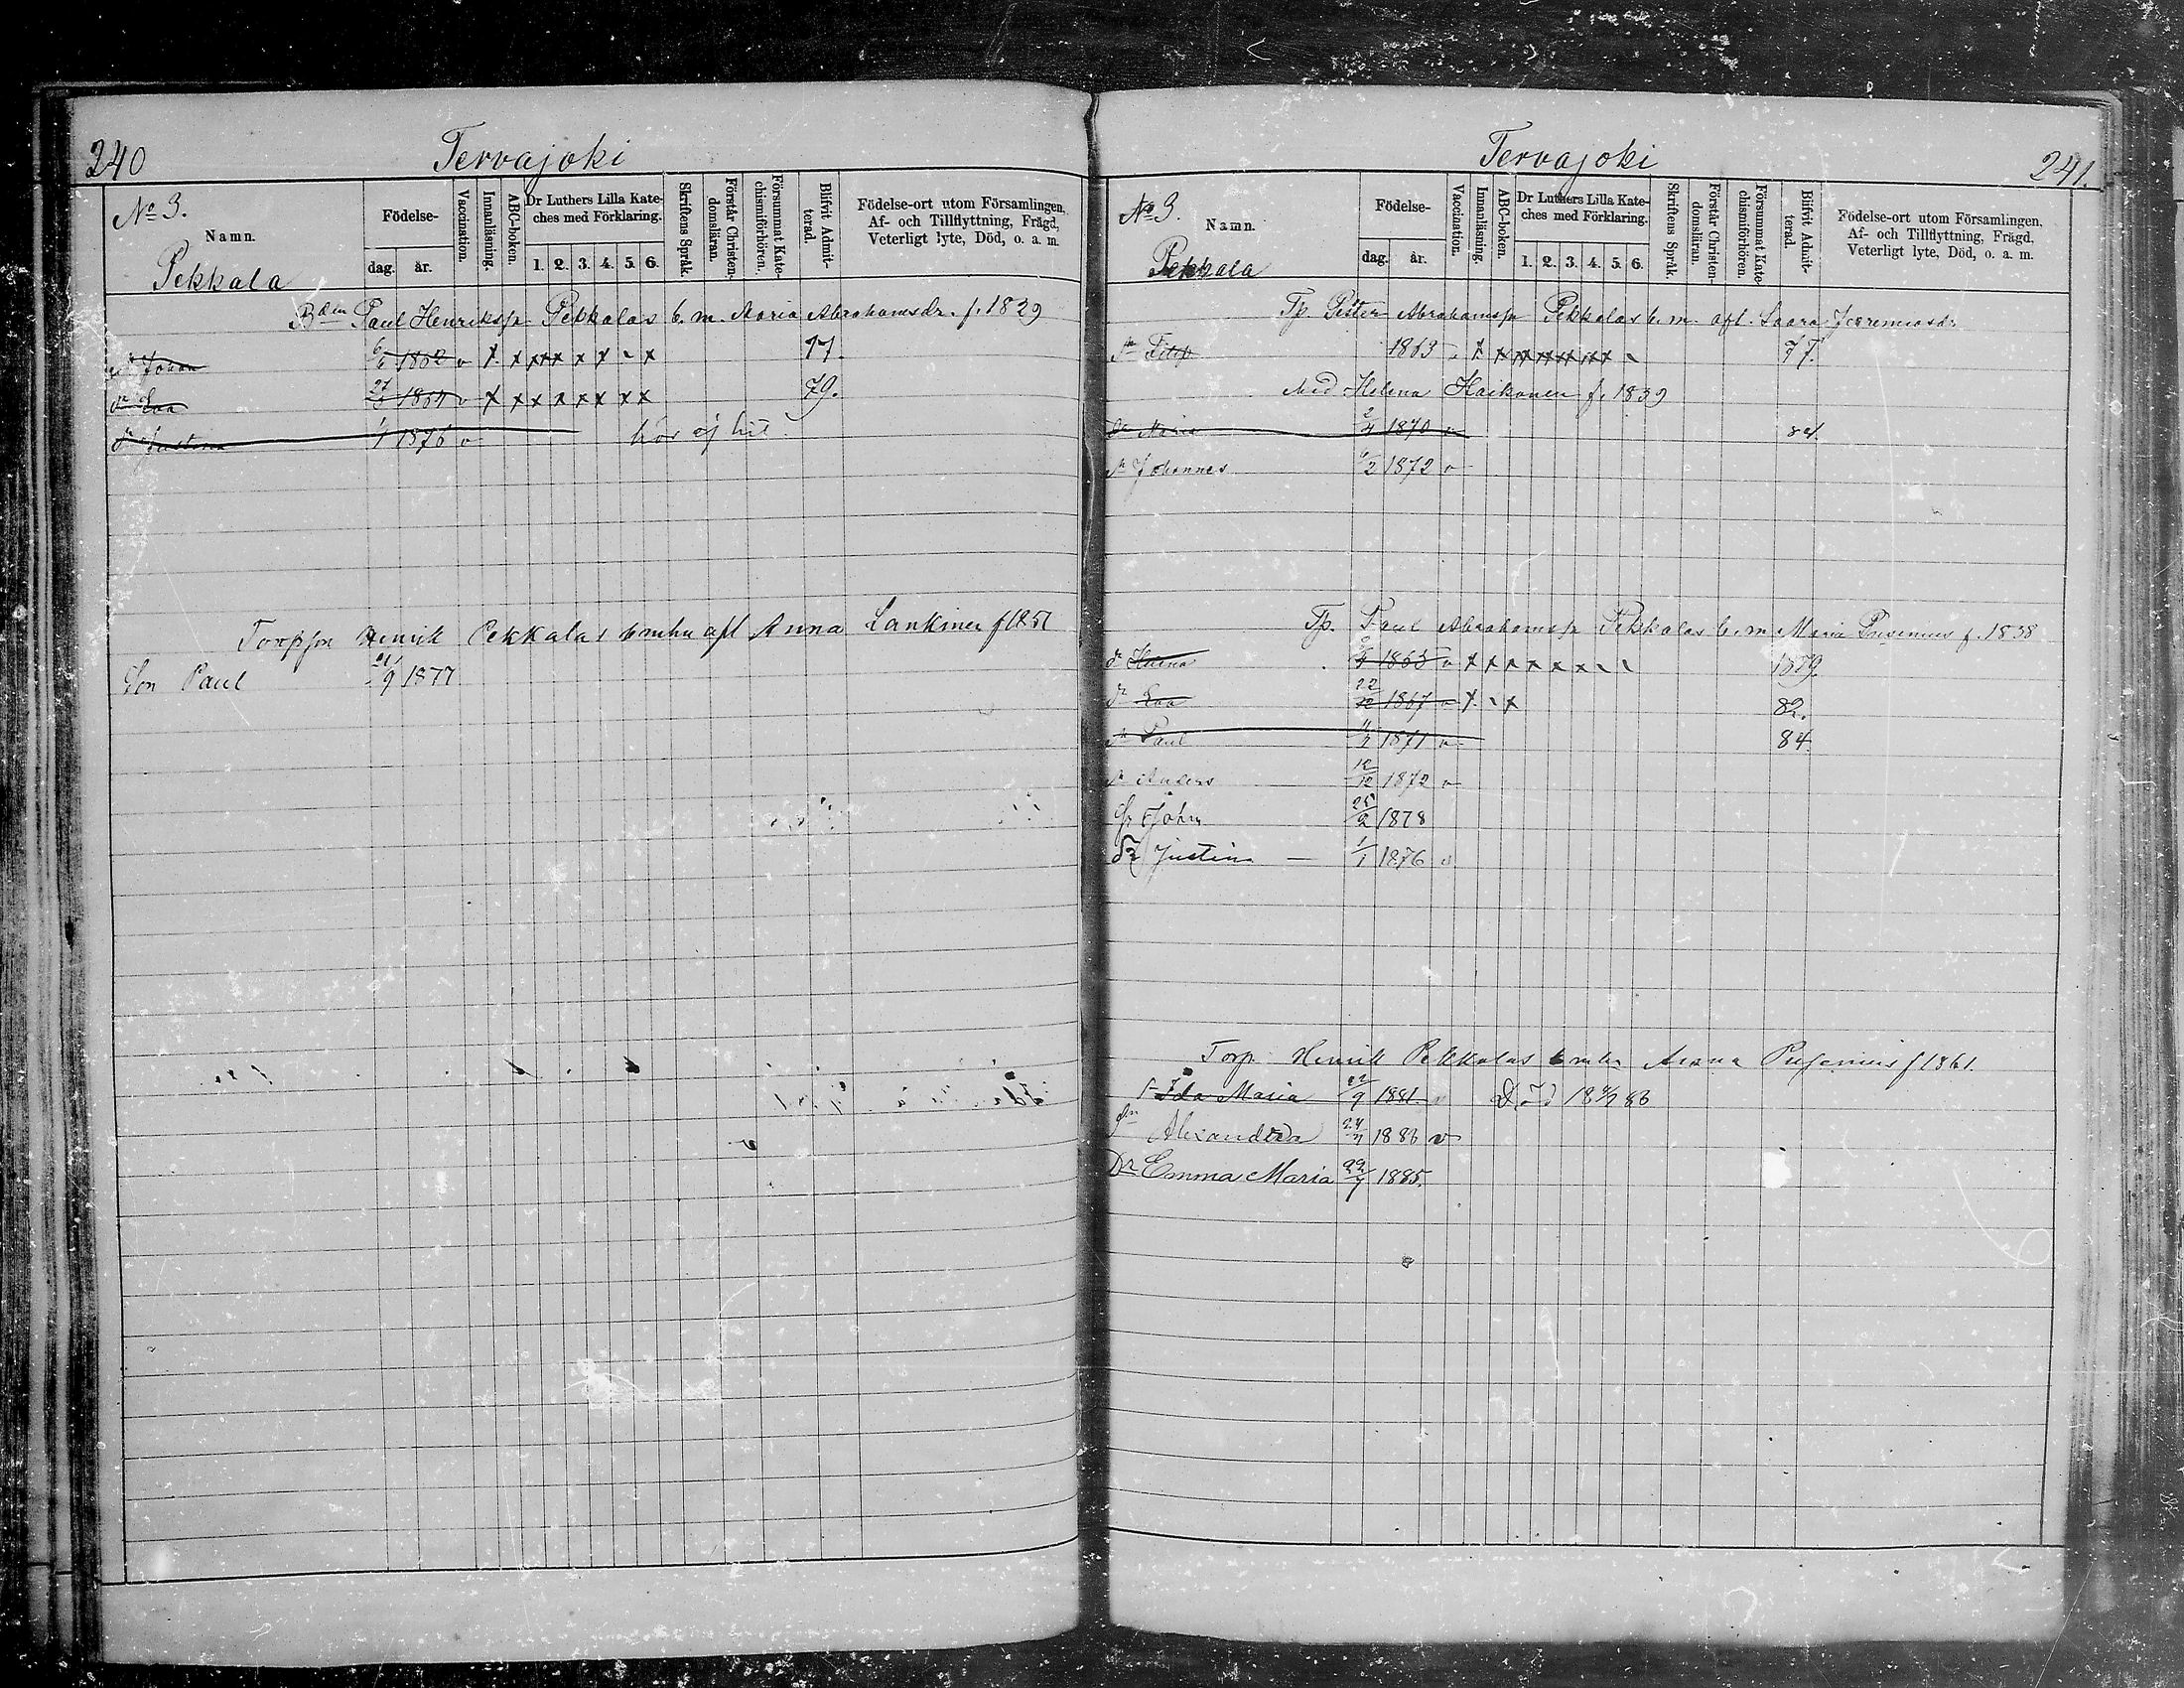 240
Tervajoki
No 3.
Namn.
Pekkala
Födelse-
dag.
år.
Vaccination.
Innanläsning.
ABC-boken.
Dr Luthers Lilla Kate-
ches med Förklaring.
1. 2. 3. 4. 5. 6.
Skriftens Språk.
Förstår Christen-
domsläran.
Försummat Kate-
chismiförhören.
Blifvit Admit-
terad.
Födelse-ort utom Församlingen,
Af- och Tillflyttning, Frägd,
Veterligt lyte, Död, o. a. m.
Paul Henriksſn Pekkalas b. m. Maria Abrahamsdr. f. 1839
Johan 1862 v x x x x x x x x 77.
dr Eva 27/5 1864 v x x x x x x x x 79.
dr Justina 1/1 1876 v hör ej hit
Torpſn Henrik Pekkalas b m hu afl Anna Lankinen f 1851
Son Paul 21/9 1877
Tervajoki
241.
No 3.
Namn.
Pekkala
Födelse-
dag.
år.
Vaccination.
Innanläsning.
ABC-boken.
Dr Luthers Lilla Kate-
ches med Förklaring.
1. 2. 3. 4. 5. 6.
Skriftens Språk.
Förstår Christen-
domsläran.
Försummat Kate-
chismiförhören.
Blifvit Admit-
terad.
Födelse-ort utom Församlingen,
Af- och Tillflyttning, Frägd,
Veterligt lyte, Död, o. a. m.
Tp. Petter Abrahamsſn Pekkalas b. m. afl. Saara Jeremiasdr
1863 77.
Med Helena Haikonen f. 1839
dr Maria 2/4 1870 v 84
sn Johannes 6/2 1872 v
Tp. Paul Abrahamsſn Pekkalas b. m. Maria f. 1838
dr 1865 v x x x x x x 1879.
dr Eva 22/12 1867 v x x 82.
sn Paul 1871 v 84.
sn Anders 12/12 1872 v
Johan 25/2 1878
Dr Justina — 1/1 1876 v
Torp. Henrik Pekkalas b m hu Anna f 1861.
Ida Maria 22/9 1881. Död
Alexandra 24/4 1883 v
Dr Emma Maria 22/7 1885.